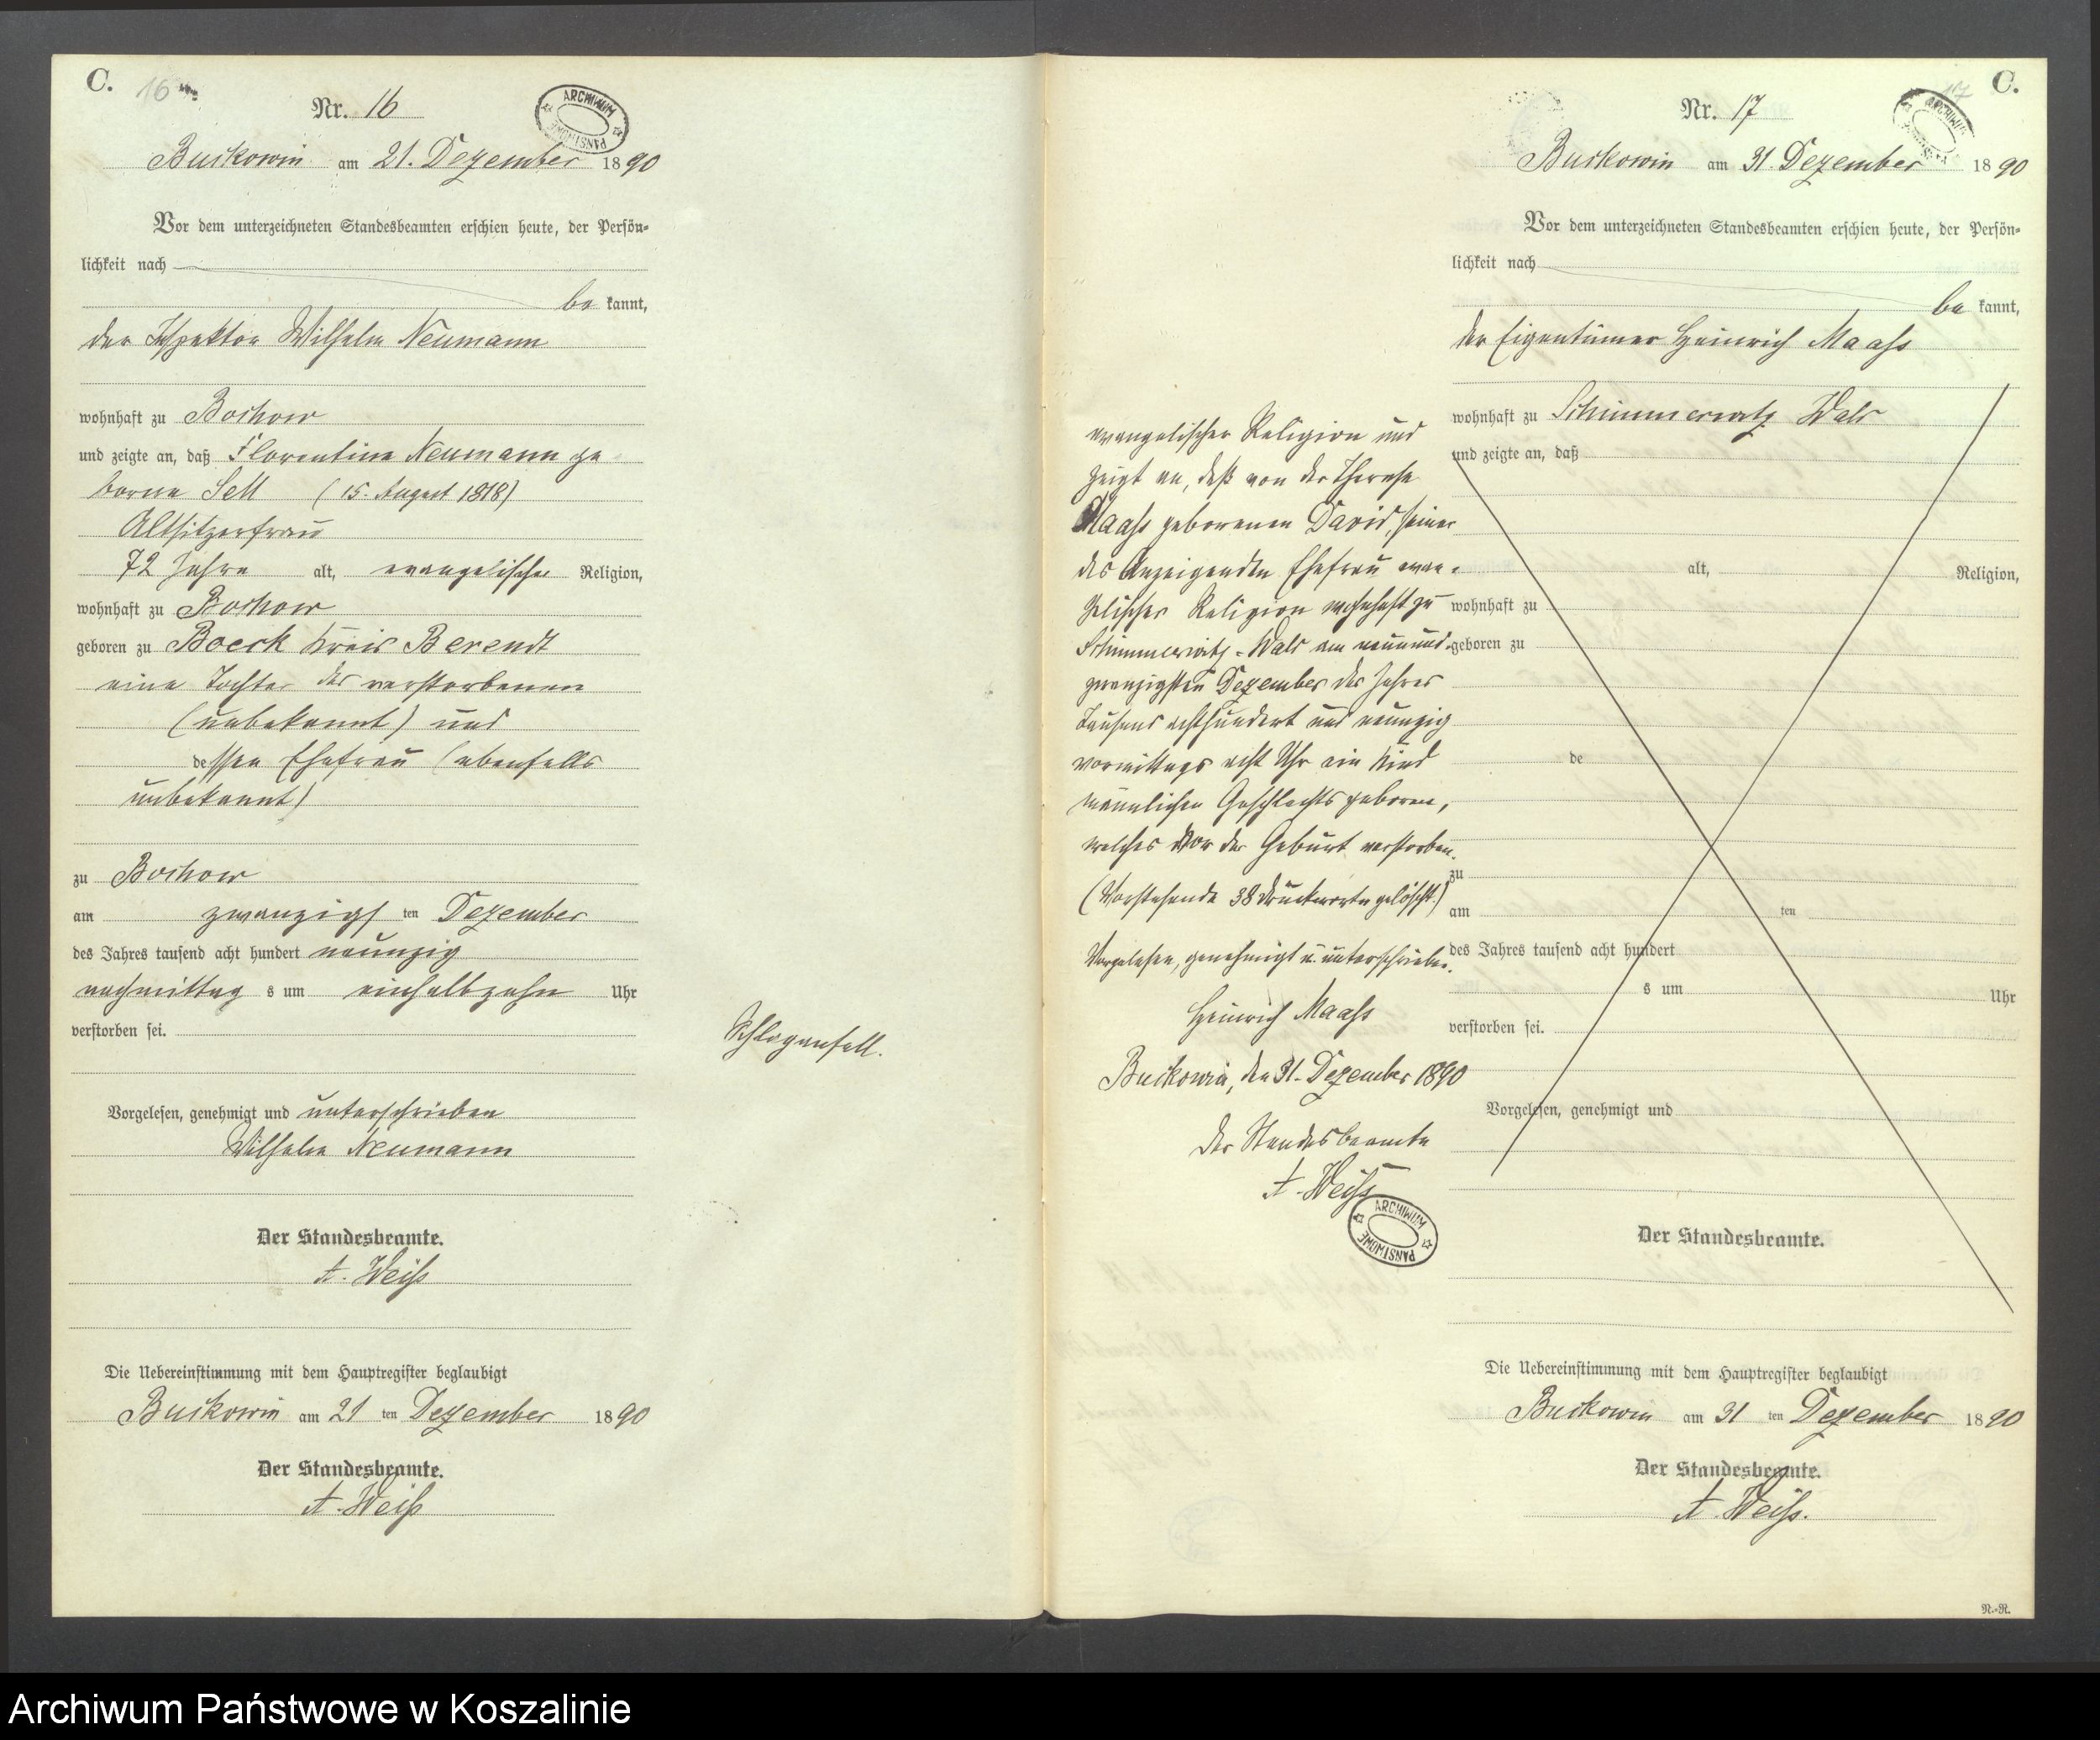 C.
16
Nr. 16
ARCHIWUM PAŃSTWOWE
Buckowin am 21. Dezember 1890
Vor dem unterzeichneten Standesbeamten erschien heute, der Persön-
lichkeit nach
be kannt,
der Inspektor Wilhelm Neumann
wohnhaft zu Bochow
und zeigte an, daß Florentine Neumann ge
borne Sell (15. August 1818)
Altsitzerfrau
72 Jahre alt, evangelischer Religion,
wohnhaft zu Bochow
geboren zu Boeck Kreis Berendt
eine Tochter des verstorbenen
(unbekannt) und
dessen Ehefrau (ebenfalls
unbekannt)
zu Bochow
am zwanzigs ten Dezember
des Jahres tausend acht hundert neunzig
nachmittag s um einhalbzehn Uhr
verstorben sei.
Schlaganfall.
Vorgelesen, genehmigt und unterschrieben
Wilhelm Neumann
Der Standesbeamte.
A. Weiß
Die Uebereinstimmung mit dem Hauptregister beglaubigt
Buckowin am 21 ten Dezember 1890
Der Standesbeamte.
A. Weiß
C.
17
Nr. 17
ARCHIWUM PAŃSTWOWE
Buckowin am 31. Dezember 1890
Vor dem unterzeichneten Standesbeamten erschien heute, der Persön-
lichkeit nach
be kannt,
der Eigentümer Heinrich Maaß
wohnhaft zu Schimmerwitz Wald
evangelischer Religion und
zeigt an, daß von der Therese
Maaß geborenen David, seiner
des Anzeigenden Ehefrau evan-
gelischer Religion wohnhaft zu
Schimmerwitz-Wald am neunund-
zwanzigsten Dezember des Jahres
Tausend achthundert und neunzig
vormittags acht Uhr ein Kind
männlichen Geschlechts geboren,
welches vor der Geburt verstorben.
(Vorstehende 38 Druckworte gelöscht.)
Vorgelesen, genehmigt u. unterschrieben.
Heinrich Maaß
Buckowin, den 31. Dezember 1890
Der Standesbeamte
A. Weiß
ARCHIWUM PAŃSTWOWE
und zeigte an, daß
alt, Religion,
wohnhaft zu
geboren zu
de
zu
am ten
des Jahres tausend acht hundert
s um Uhr
verstorben sei.
Vorgelesen, genehmigt und
Der Standesbeamte.
Die Uebereinstimmung mit dem Hauptregister beglaubigt
Buckowin am 31 ten Dezember 1890
Der Standesbeamte.
A. Weiß.
N.-R.
Archiwum Państwowe w Koszalinie